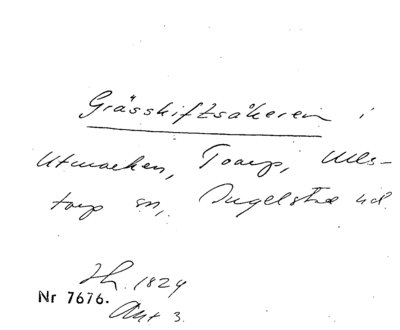 Grässkiftsåkeren i
Utmarken, Toarp, Ulls-
torp sn, Ingelsta hd
Ih. 1824
Nr 7676.
Akt 3.